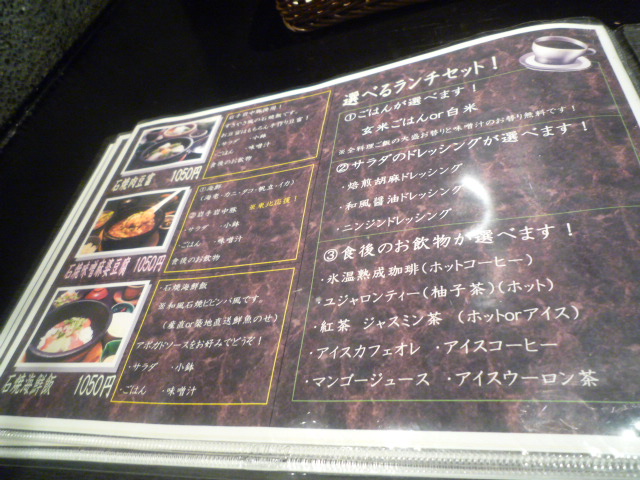 石焼肉豆腐 1050円
サラダ ・小鉢
ごはん ・味噌汁
食後のお飲物
石焼味噌麻婆豆腐 1050円
①海鮮
(海老・カニ・タコ・帆立・イカ)
サラダ ・小鉢
ごはん ・味噌汁
食後のお飲物
石焼海鮮飯 1050円
・石焼海鮮飯
※和風石焼ビビンバ風です。
(産直or築地直送鮮魚のせ)
アボガドソースをお好みでどうぞ!
・サラダ ・小鉢
・ごはん ・味噌汁
選べるランチセット!
①ごはんが選べます!
玄米ごはんor白米
※全料理ご飯の大盛お替りと味噌汁のお替り無料です!
②サラダのドレッシングが選べます!
・焙煎胡麻ドレッシング
・和風醤油ドレッシング
・ニンジンドレッシング
③食後のお飲物が選べます!
・氷温熟成珈琲(ホットコーヒー)
・ユジャロンティー(柚子茶)(ホット)
・紅茶 ジャスミン茶 (ホットorアイス)
・アイスカフェオレ ・アイスコーヒー
・マンゴージュース ・アイスウーロン茶